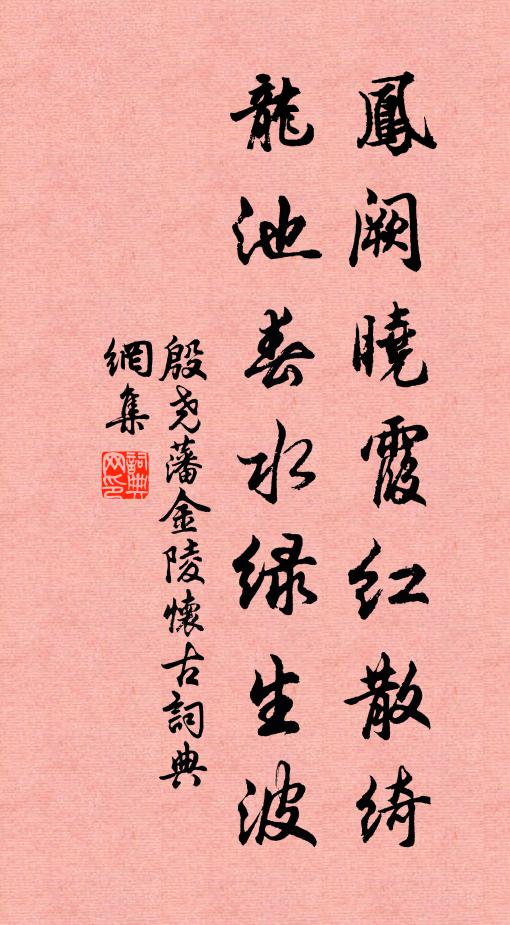 鳳闕曉霞紅散綺
龍池春水緑生波
殷尧藩金陵懷古詞典
網集
詞典網印